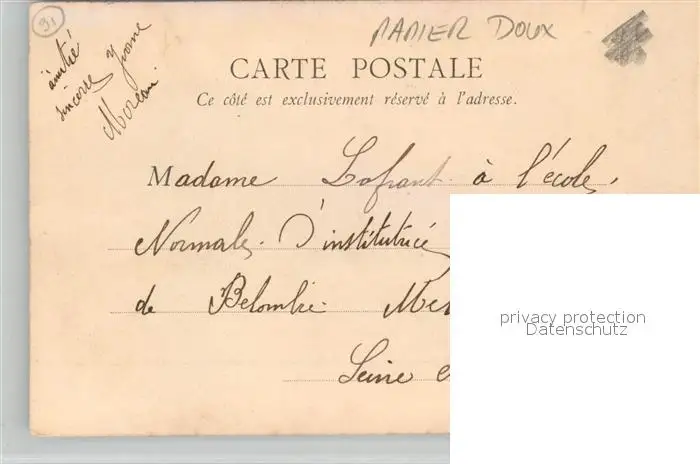 31
PANIER DOUX
amitié
sincère Yvonne
Moreau
CARTE POSTALE
Ce côté est exclusivement réservé à l'adresse.
Madame à l'école
Normale D'institutrice
de Belombre
Seine
privacy protection
Datenschutz